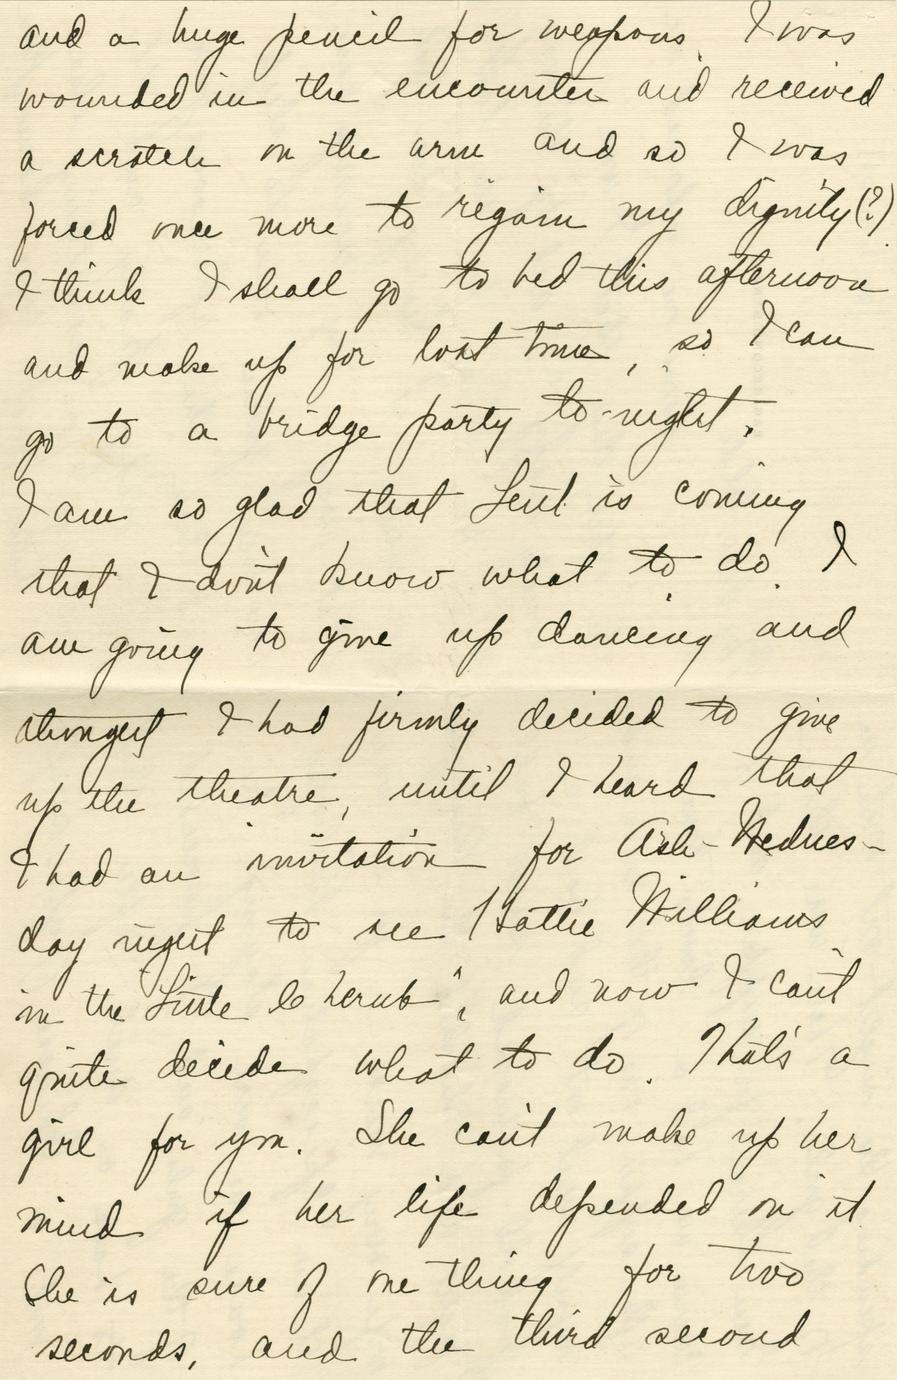 and a huge pencil for weapons. I was
wounded in the encounter and received
a scratch on the arm and so I was
forced once more to regain my dignity(?)
I think I shall go to bed this afternoon
and make up for lost time, so I can
go to a bridge party to-night.
I am so glad that Lent is coming
that I don't know what to do. I
am going to give up dancing and
I had firmly decided to give
up the theatre, until I heard that
I had an invitation for Ash-Wednes-
day night to see Hattie Williams
in the "Little Cherub", and now I can't
quite decide what to do. That's a
girl for you. She can't make up her
mind if her life depended on it
She is sure of one thing for two
seconds, and the third second